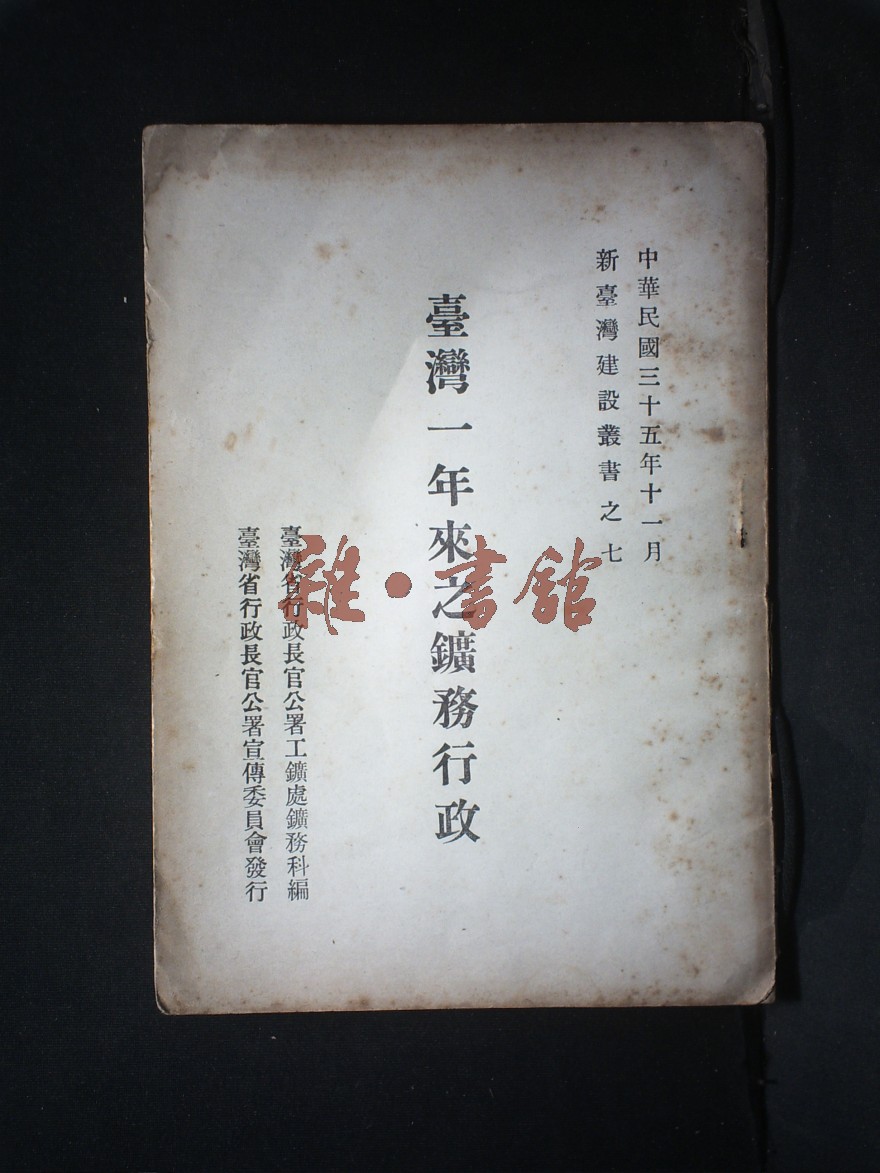 中華民國三十五年十一月
新臺灣建設叢書之七
臺灣一年來之鑛務行政
臺灣省行政長官公署工鑛處鑛務科編
臺灣省行政長官公署宣傳委員會發行
雜·書館